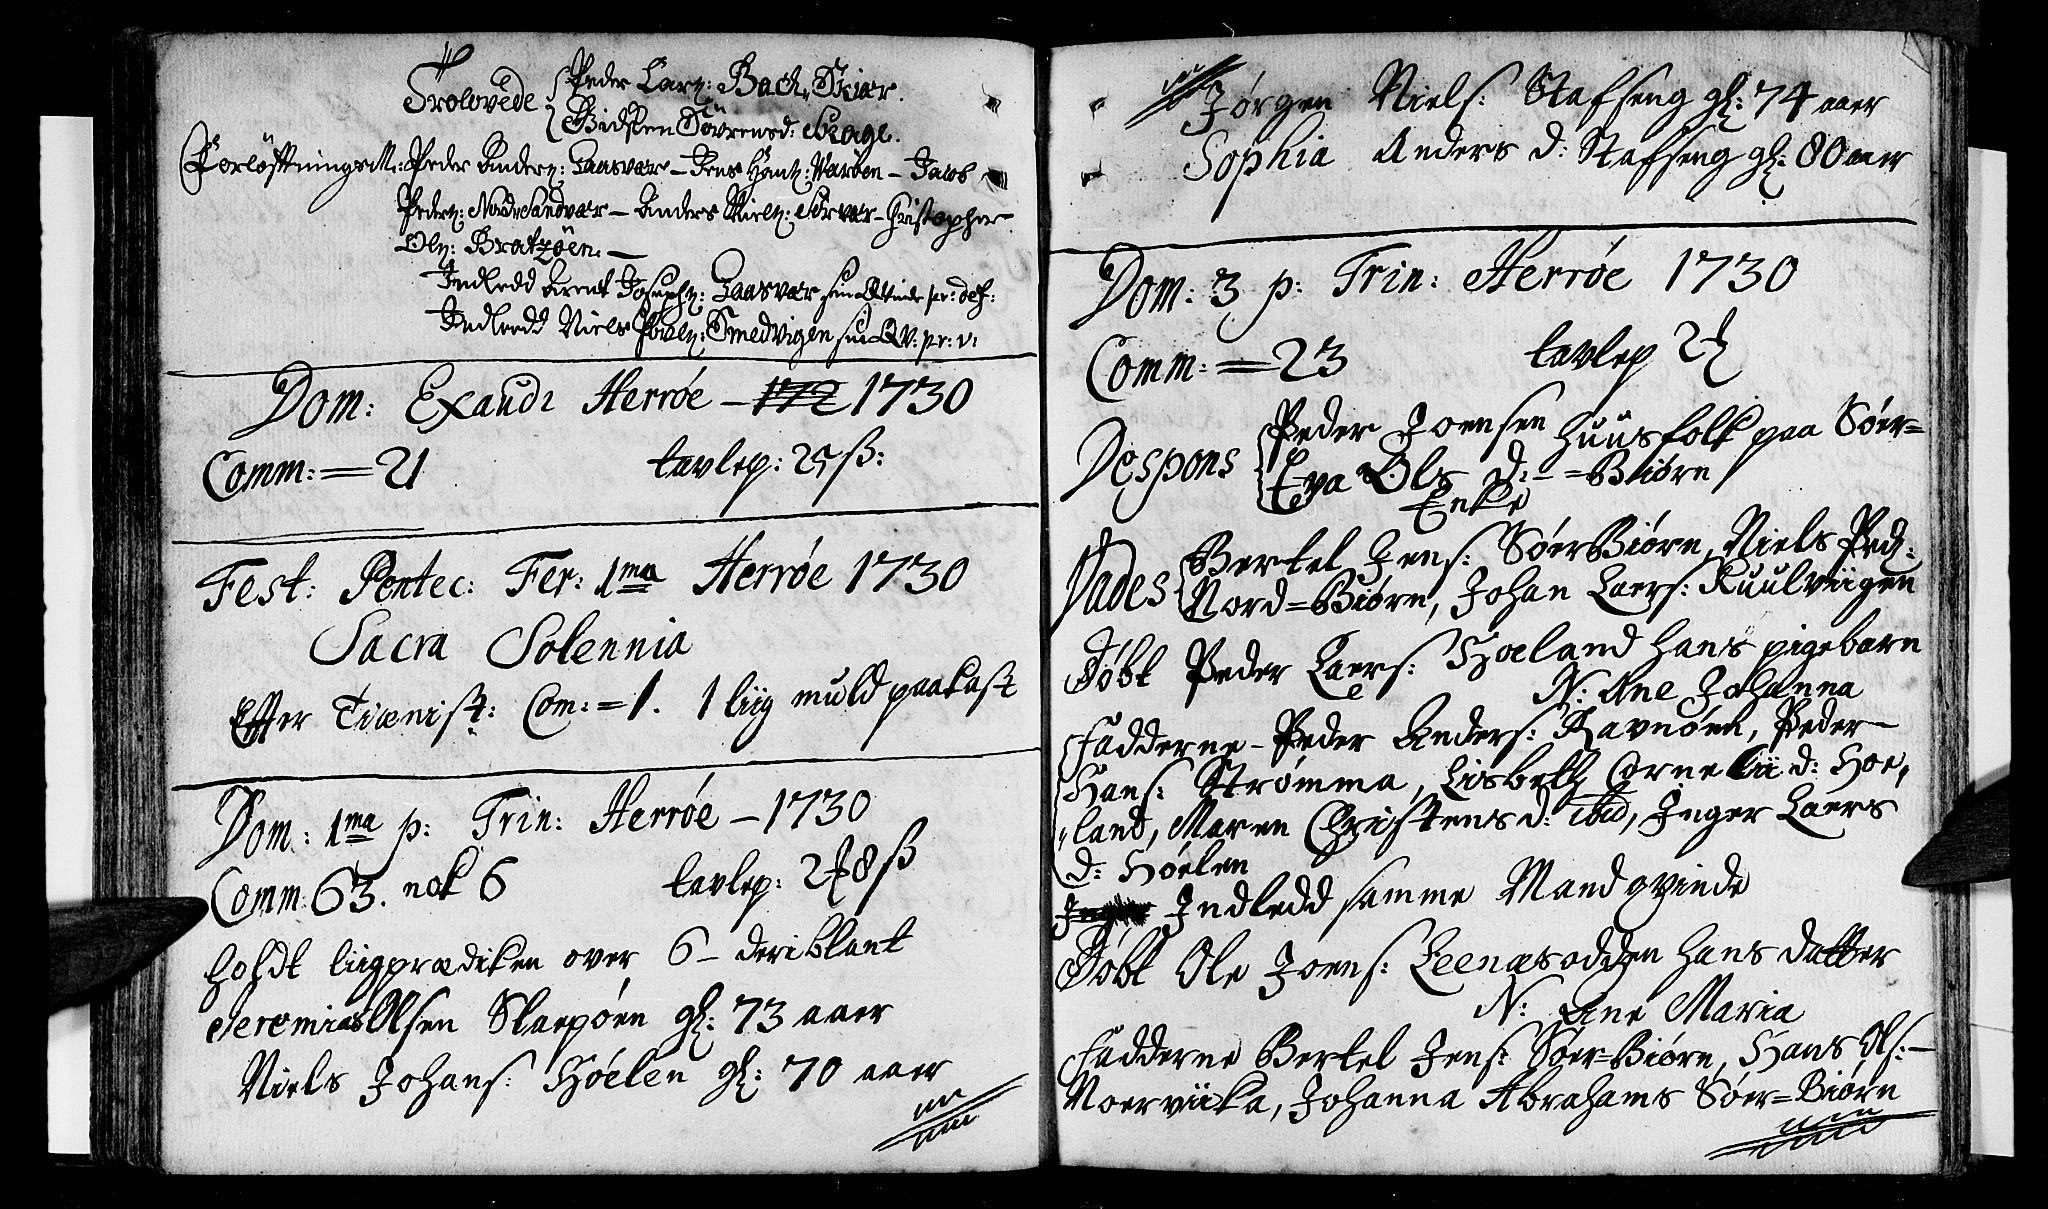 Trolovede { Peder Larz: Bach Skiær.
Bidsken Sövrensd: Skage.
Forlöftningsm: Peder Anderz: Gaasvær – Jens Hanz: Waröen – Jacob
Pederz: Nord Sandvær – Anders Nielz: Sörvær – Christopher
Olz: Bratzöen. –
Indledd Arent Josephz: Gaasvær sin Qvinde pr: def:
Indledd Niels Povelz: Smedvigen sin QV: pr: v:
Dom: Exaudi Herrøe – 172 1730
Comm: = 21 tavlep: 25 ß:
Fest: Pentec: Fer: 1ma Herrøe 1730
Sacra Solennia
Effter Tienist: Com: = 1. 1 liig muld paakast
Dom: 1ma p: Trin: Herrøe – 1730
Comm 63. nok 6 tavlep: 2 8 ß
holdt liigprædiken over 6 – deriblant
Jeremias Olsen Slaepøen gl: 73 aaer
Niels Johans: Høelen gl: 70 aaer
Jørgen Niels: Stafseng gl: 74 aaer
Sophia Anders d: Stafseng gl: 80 aaer
Dom: 3 p: Trin: Herrøe 1730
Comm: = 23 tavlep 2
Despons { Peder Joensen huusfolk paa Søer=
Eva Ols d: – =Biørn
Enke
Vades { Bertel Jens: SøerBiørn, Niels Ped:
Nord=Biørn, Johan Laers: Kuulviigen
Døbt Peder Laers: Hoeland hans pigebarn
N: Ane Johanna
Fadderne – Peder Anders: Ravnøen, Peder –
Hans: Strømma, Lisbeth Cornelii d: Hoe,
land, Maren Christens d: ibid, Inger Laers
d: Høelen
Indledd samme Mand qvinde
Døbt Ole Joens: Leenæsodden hans datter
N: Ane Maria
Fadderne Bertel Jens: Søer=Biørn, Hans Ols: –
Noerviika, Johanna Abrahams Søer=Biørn